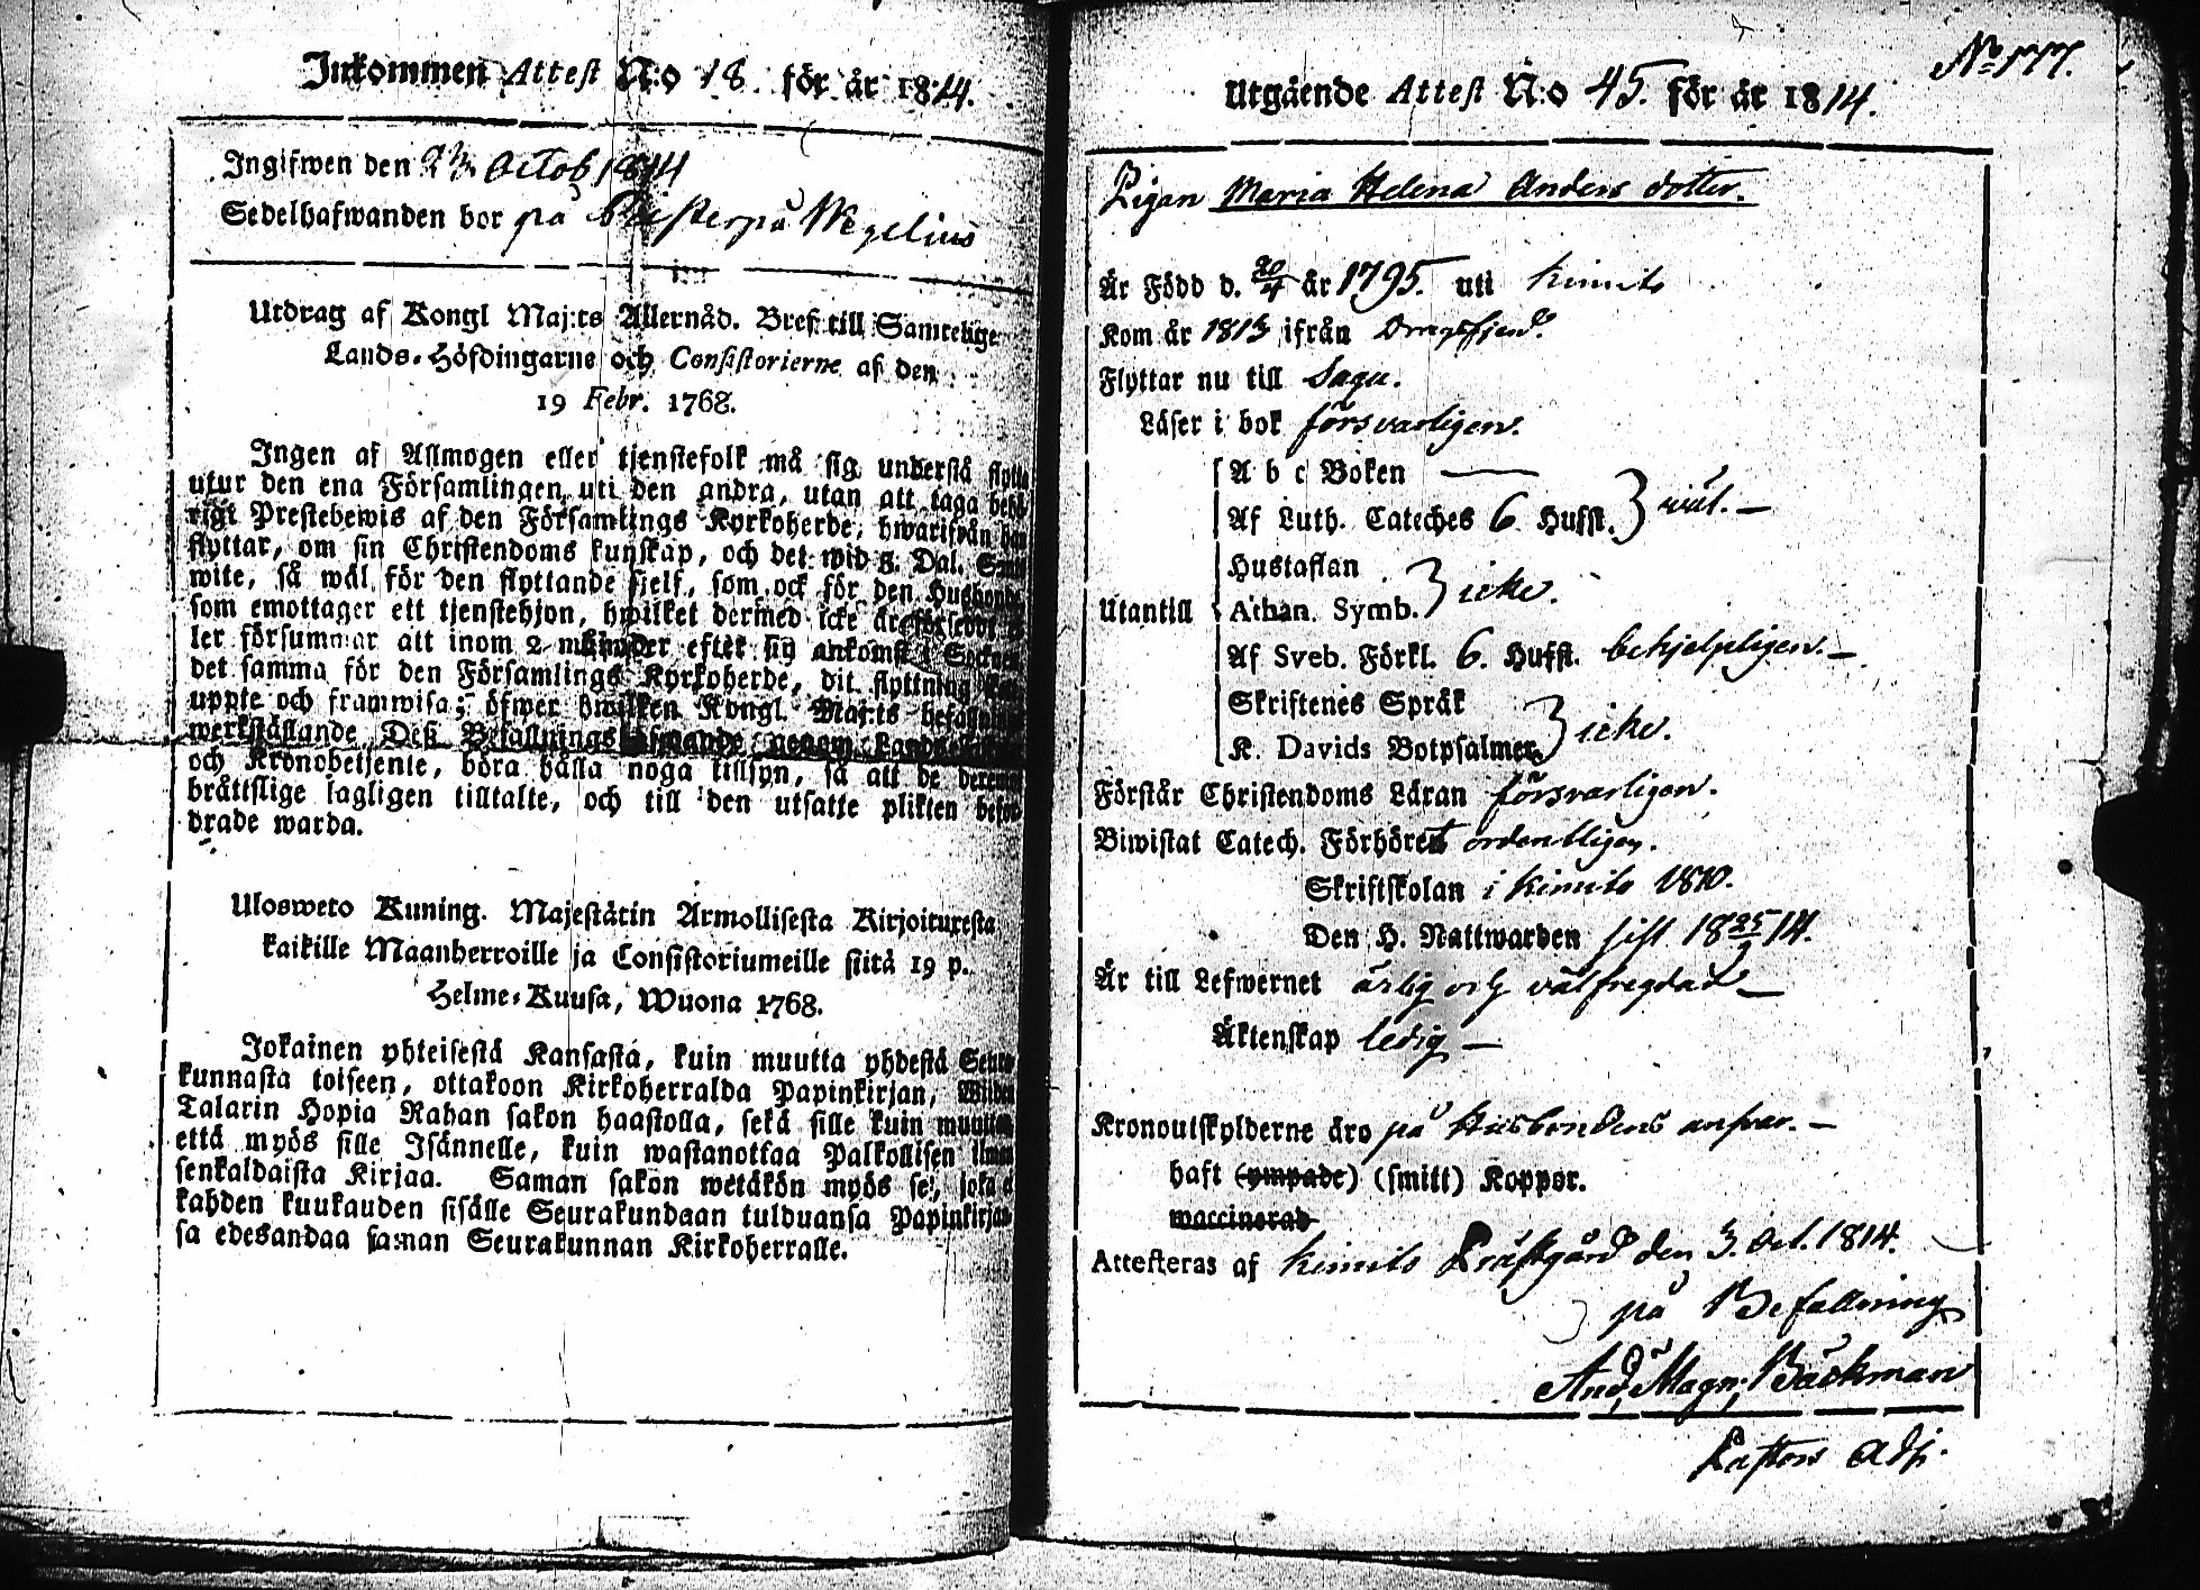 Inkommen Attest N:o 18. för år 1814.
Ingifwen den Octob 1814
Sedelhafwanden bor på Wegelius
Utdrag af Kongl Maj:ts Allernåd. Bref till Samtelige
Lands-Höfdingarne och Consistorierne af den
19 Febr. 1768.
Ingen af Allmogen eller tjenstefolk må sig understå flytta
utur den ena Församlingen uti den andra, utan att taga behö
rigt Prestebewis af den Församlings Kyrkoherde, hwarifrån han
flyttar, om sin Christendoms kunskap, och det wid 8. Dal. Smt
wite, så wäl för den flyttande sjelf, som ock för den Husbonde
som emottager ett tjenstehjon, hwilket dermed icke är försedt
ler försummar att inom 2 månader efter sin ankomst i Socknen
det samma för den Församlings Kyrkoherde, dit flyttning
uppte och framwisa; öfwer hwilken Kongl. Maj:ts befallning
werkställande Deß Befallningshafwande genom
och Kronobetjente, böra hålla noga tillsyn, så att de
bråttslige lagligen tilltalte, och till den utsatte plikten befor
drade warda.
Ulosweto Kuning. Majestätin Armollisesta Kirjoituxesta
kaikille Maanherroille ja Consistoriumeille siitä 19 p.
Helme-Kuusa, Wuona 1768.
Jokainen yhteisestä Kansasta, kuin muutta yhdestä Seura
kunnasta toiseen, ottakoon Kirkoherralda Papinkirjan,
Talarin Hopia Rahan sakon haastolla, sekä sille kuin muutta
että myös sille Isännelle, kuin wastanottaa Palkollisen ilman
senkaldaista Kirjaa. Saman sakon wetäkön myös se, joka ei
kahden kuukauden sisälle Seurakundaan tulduansa Papinkirjan
sa edesandaa saman Seurakunnan Kirkoherralle.
No 177.
Utgående Attest N:o 45. för år 1814.
Pigan Maria Helena Anders dotter.
Är Född d. 20/4 år 1795. uti Kimito
Kom år 1813 ifrån Dragsfjerd
Flyttar nu till Sagu.
Läser i bok försvarligen.
Utantill
A b c Boken —
Af Luth. Cateches 6 Hufst. } wäl. —
Hustaflan
Athan. Symb. } icke.
Af Sveb. Förkl. 6. Hufst. behjelpligen. —
Skriftenes Språk
K. Davids Botpsalmer } icke.
Förstår Christendoms Läran försvarligen.
Biwistat Catech. Förhöret ordentligen.
Skriftskolan i Kimito 1810.
Den H. Nattwarden sist 18 25/9 14.
Är till Lefwernet ärlig och välfregdad —
Äktenskap ledig —
Kronoutskylderne äro på Husbondens ansvar. —
haft (ympade) (smitt) Koppor.
waccinerad
Attesteras af Kimito Prästgård den 3. Oct. 1814.
på Befallning
And. Magn: Bäckman
Pastors Adj.